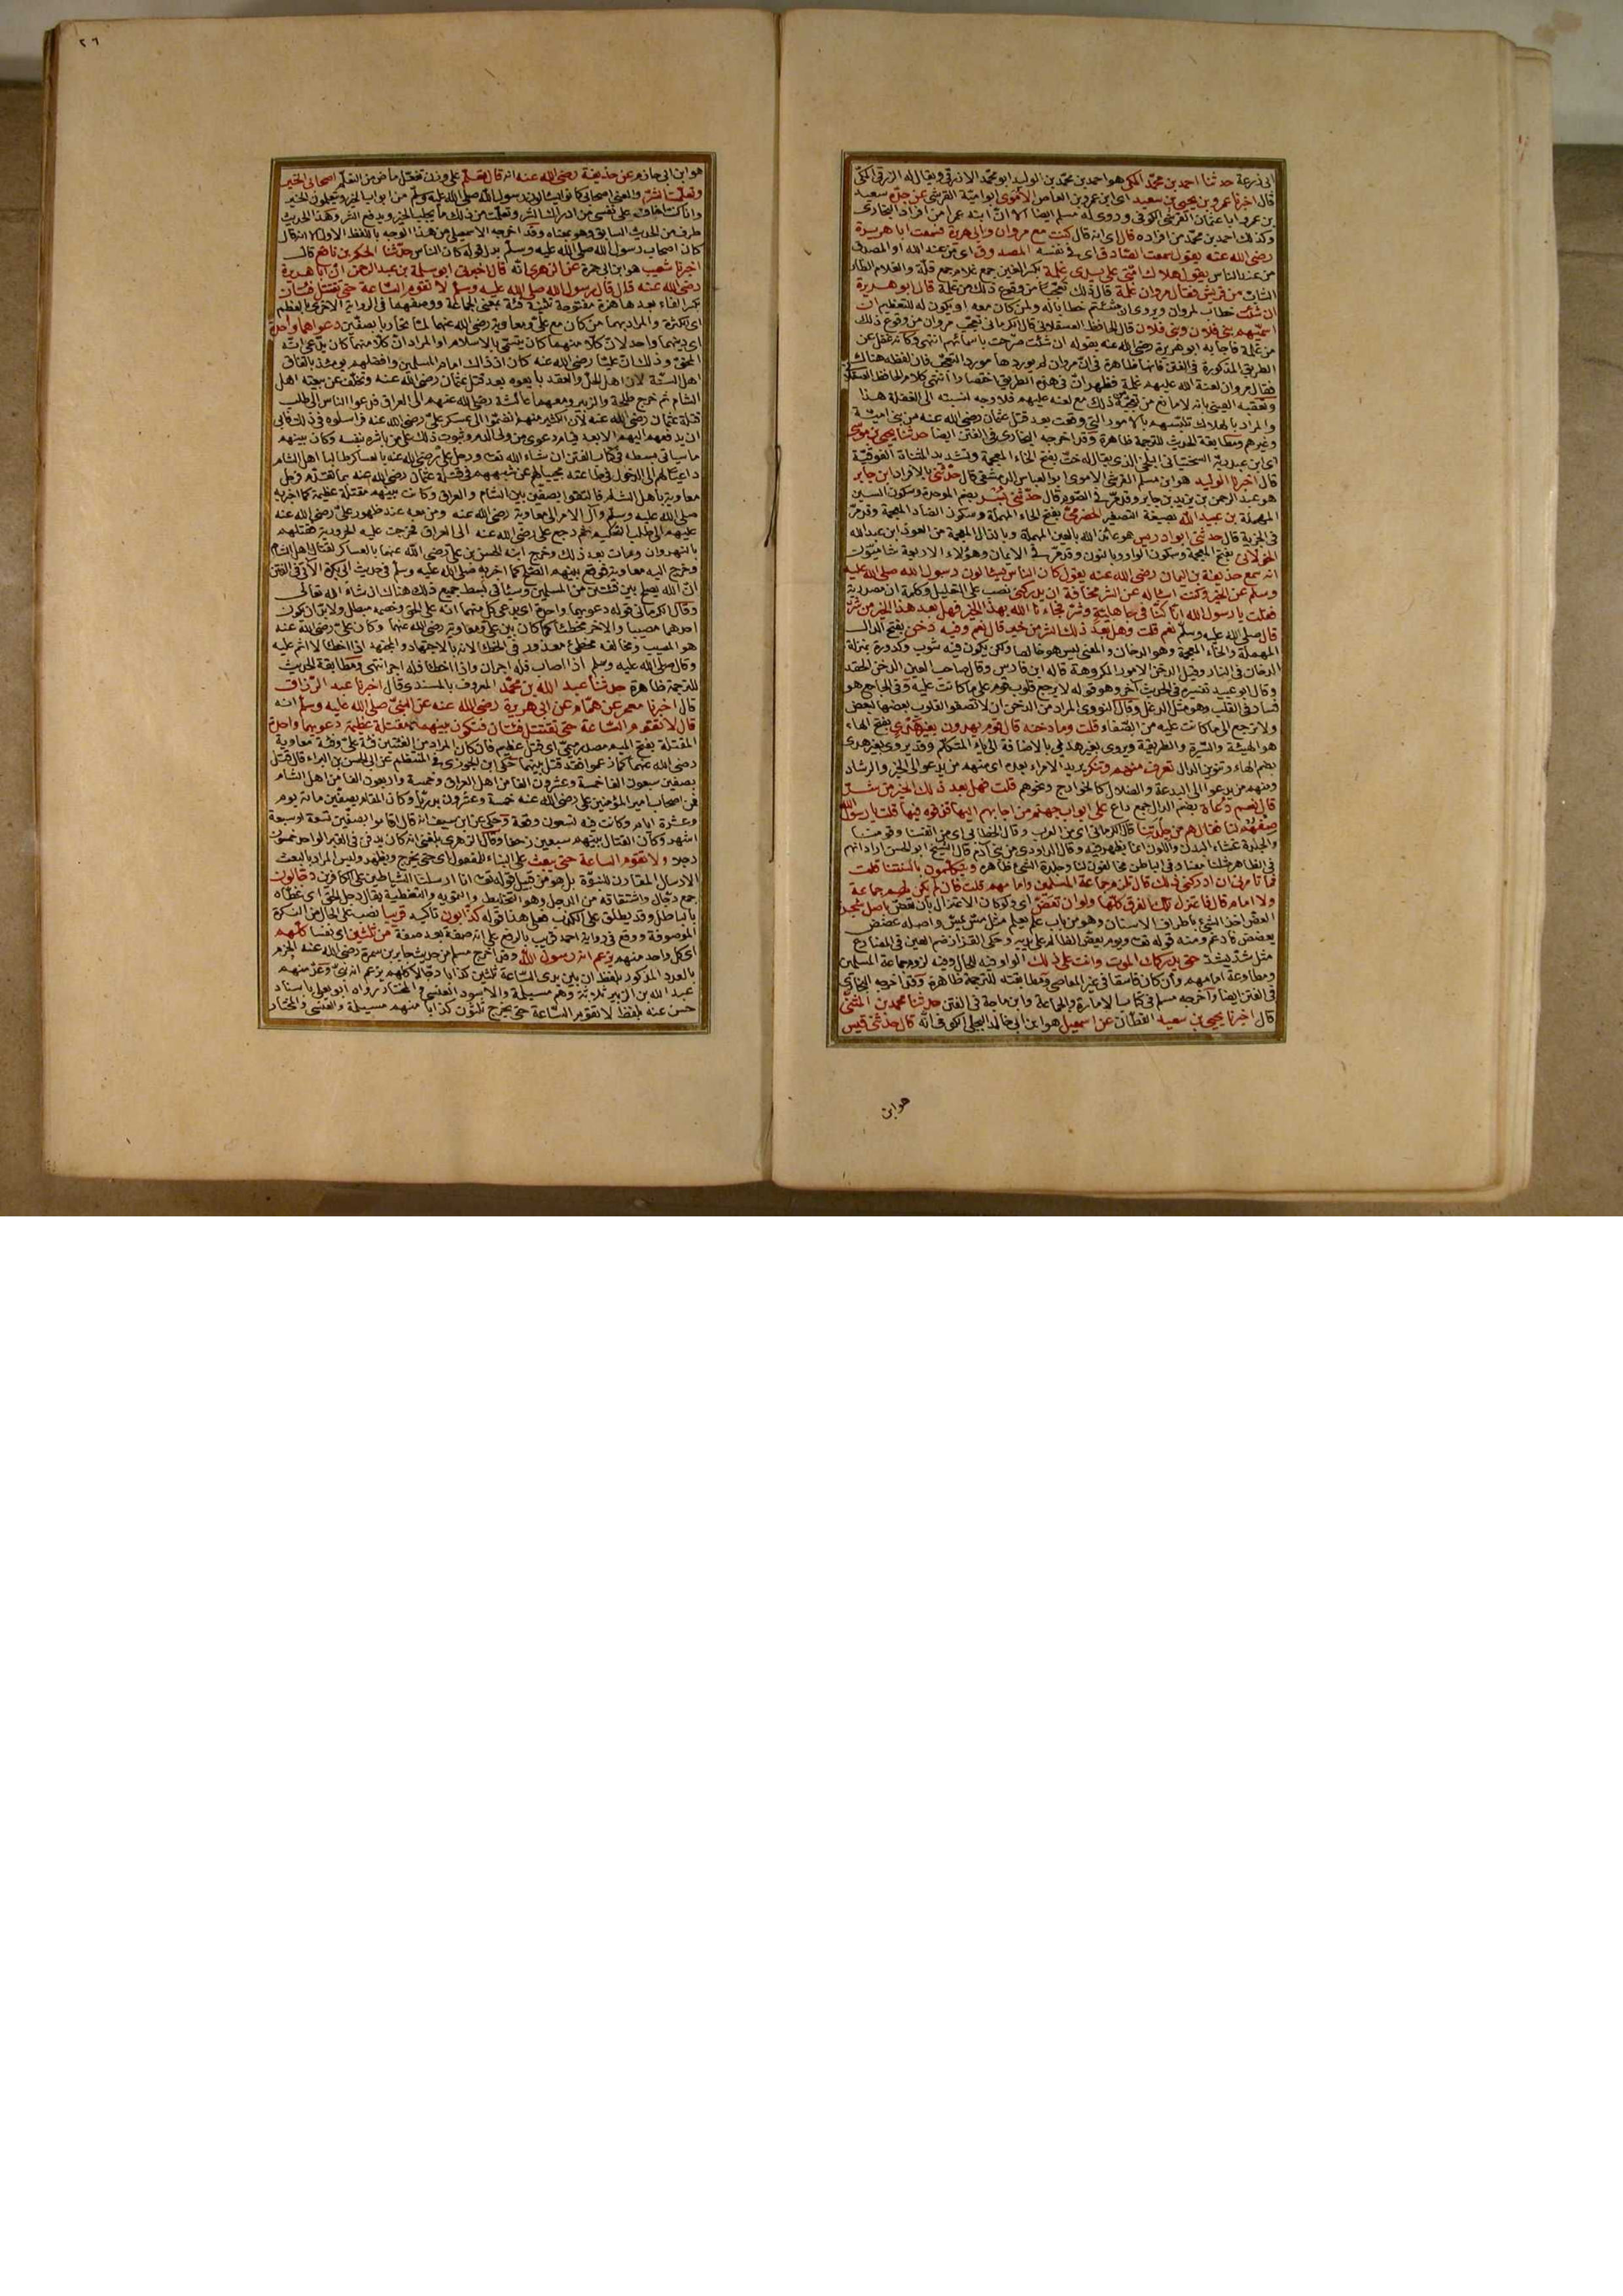 ابى زرعة حدثنا احمد بن محمد المكي هو احمد بن محمد بن الوليد ابو محمد الازرقي ويقال له الزرقي المكي
قال اخبرنا عمرو بن يحيى بن سعيد اى ابن عمرو بن العاص الأموي ابو امية القرشي عن جده سعيد
بن عمرو ابا عثمان القرشي الكوفي وروى له مسلم ايضا الا ان ابنه عمرا من افراد البخاري
وكذلك احمد بن محمد من افراده قال اى انه قال كنت مع مروان وابي هريرة فسمعت ابا هريرة
رضي الله عنه يقول سمعت الصادق اى في نفسه المصدوق اى من عند الله او المصدق
من عند الناس يقول هلاك امتي على يدى غلمة بكسر الغين جمع غلام جمع قلة والغلام الطار
الشاب من قريش فقال مروان غلمة قال ذلك تعجبا من وقوع ذلك من غلمة قال ابو هريرة
ان شئت خطاب لمروان ويروى ان شئتم خطابا له ولمن كان معه او يكون له للتعظيم ان
اسميهم بني فلان وبني فلان قال الحافظ العسقلاني قال الكرماني تعجب مروان من وقوع ذلك
من غلمة فاجابه ابو هريرة رضي الله عنه بقوله ان شئت صرحت باسمائهم انتهى وكانه غفل عن
الطريق المذكورة في الفتن فانها ظاهرة في ان مروان لم يوردها مورد التعجب فان لفظه هناك
فقال مروان لعنة الله عليهم غلمة فظهر ان في هذه الطريق اختصارا انتهى كلام الحافظ العسقلاني
وتعقبه العيني بانه لا مانع من تعجبه ذلك مع لعنه عليهم فلا وجه لنسبته الى الغفلة هذا
والمراد بالهلاك تلبسهم بالامور التي وقعت بعد قتل عثمان رضي الله عنه من بني امية
وغيرهم ومطابقة الحديث للترجمة ظاهرة وقد اخرجه البخاري في الفتن ايضا حدثنا يحيى بن موسى
اى ابن عبد ربه السختياني البلخي الذي يقال له خت بفتح الخاء المعجمة وتشديد المثناة الفوقية
قال اخبرنا الوليد هو ابن مسلم القرشي الاموي ابو العباس الدمشقي قال حدثني بالافراد ابن جابر
هو عبد الرحمن بن يزيد بن جابر وقد مر في الصوم قال حدثني بسر بضم الموحدة وسكون السين
المهملة بن عبيد الله بصيغة التصغير الحضرمي بفتح الحاء المهملة وسكون الضاد المعجمة وقد مر
في الجزية قال حدثني ابو ادريس هو عائذ الله بالعين المهملة وبالذال المعجمة من العوذ ابن عبد الله
الخولاني بفتح المعجمة وسكون الواو وبالنون وقد مر في الايمان وهؤلاء الاربعة شاميون
انه سمع حذيفة بن اليمان رضي الله عنه يقول كان الناس يسألون رسول الله صلى الله عليه
وسلم عن الخير وكنت اسأله عن الشر مخافة ان يدركني نصب على التعليل وكلمة ان مصدرية
فقلت يا رسول الله انا كنا في جاهلية وشر فجاءنا الله بهذا الخير فهل بعد هذا الخير من شر
قال صلى الله عليه وسلم نعم قلت وهل بعد ذلك الشر من خير قال نعم وفيه دخن بفتح الدال
المهملة والخاء المعجمة وهو الدخان والمعنى ليس هو خالصا ولكن يكون فيه شوب وكدورة بمنزلة
الدخان في النار وقيل الدخن الامور المكروهة قاله ابن فارس وقال صاحب العين الدخن الحقد
وقال ابو عبيد تفسيره في الحديث آخر وهو قوله لا يرجع قلوب قوم على ما كانت عليه وفي الجامع هو
فساد في القلب وهو مثل الدغل وقال النووي المراد من الدخن ان لا تصفو القلوب بعضها لبعض
ولا ترجع الى ما كانت عليه من الصفاء قلت وما دخنه قال قوم يهدون بغير هديي بفتح الهاء
هو الهيئة والسيرة والطريقة ويروى بغير هديي بالاضافة الى ياء المتكلم وقد يروى بغير هدى
بضم الهاء وتنوين الدال تعرف منهم وتنكر يريد الامراء بعده اى منهم من يدعو الى الخير والرشاد
ومنهم من يدعو الى البدعة والضلال كالخوارج ونحوهم قلت فهل بعد ذلك الخير من شر
قال نعم دعاة بضم الدال جمع داع على ابواب جهنم من اجابهم اليها قذفوه فيها قلت يا رسول الله
صفهم لنا فقال هم من جلدتنا قال الكرماني اى من العرب وقال الخطابي اى من انفسنا وقومنا
والجلدة غشاء البدن واللون انما يظهر فيه وقال الداودي من بني آدم قال الشيخ ابو الحسن اراد انهم
في الظاهر مثلنا معنا وفي الباطن مخالفون لنا وجلدة الشيء ظاهره ويتكلمون بالسنتنا قلت
فما تأمرني ان ادركني ذلك قال تلزم جماعة المسلمين وامامهم قلت فان لم يكن لهم جماعة
ولا امام قال فاعتزل تلك الفرق كلها ولو ان تعض اى ولو كان الاعتزال بان تعض باصل شجرة
العض اخذ الشيء باطراف الاسنان وهو من باب علم يعلم مثل مس يمس واصله عضض
يعضض فادغم ومنه قوله تعالى ويوم يعض الظالم على يديه وحكى القزاز ضم العين في المضارع
مثل شد يشد حتى يدركك الموت وانت على ذلك الواو فيه للحال وفيه لزوم جماعة المسلمين
ومطاوعة امامهم وان كان فاسقا في غير المعاصي ومطابقته للترجمة ظاهرة وقد اخرجه البخاري
في الفتن ايضا واخرجه مسلم في كتاب الامارة والجماعة وابن ماجة في الفتن حدثنا محمد بن المثنى
قال اخبرنا يحيى بن سعيد القطان عن اسمعيل هو ابن ابي خالد البجلي الكوفي انه قال حدثني قيس
هو ابن
٢٦
هو ابن ابي حازم عن حذيفة رضي الله عنه انه قال تعلم على وزن تفعل ماض من التعلم اصحابي الخير
وتعلمت الشر والمعنى اصحابي كانوا يسألون رسول الله صلى الله عليه وسلم من ابواب الخير ويتعلمون الخير
وانا كنت اخاف على نفسي من ادراك الشر وتعلمت من ذلك ما يجلب الخير ويدفع الشر وهذا الحديث
طرف من الحديث السابق وهو بمعناه وقد اخرجه الاسمعيلي من هذا الوجه باللفظ الاول الا انه قال
كان اصحاب رسول الله صلى الله عليه وسلم بدل قوله كان الناس حدثنا الحكم بن نافع قال
اخبرنا شعيب هو ابن ابي حمزة عن الزهري انه قال اخبرني ابو سلمة بن عبد الرحمن ان ابا هريرة
رضي الله عنه قال قال رسول الله صلى الله عليه وسلم لا تقوم الساعة حتى يقتتل فئتان
بكسر الفاء بعدها همزة مفتوحة تثنية فئة بمعنى الجماعة ووصفهما في الرواية الاخرى بالعظم
اى الكثرة والمراد بهما من كان مع علي ومعاوية رضي الله عنهما لما تحاربا بصفين دعواهما واحدة
اى دينهما واحد لان كلا منهما كان يتسمى بالاسلام او المراد ان كلا منهما كان يدعي انه
المحق وذلك ان عليا رضي الله عنه كان اذ ذاك امام المسلمين وافضلهم يومئذ باتفاق
اهل السنة لان اهل الحل والعقد بايعوه بعد قتل عثمان رضي الله عنه وتخلف عن بيعته اهل
الشام ثم خرج طلحة والزبير ومعهما عائشة رضي الله عنهم الى العراق فدعوا الناس الى طلب
قتلة عثمان رضي الله عنه لان الكثير منهم انضموا الى عسكر علي رضي الله عنه فراسلوه في ذلك فابى
ان يدفعهم اليهم الا بعد قيام دعوى من ولي الدم وثبوت ذلك على من باشره بنفسه وكان بينهم
ما سيأتي بسطه في كتاب الفتن ان شاء الله تعالى ورحل علي رضي الله عنه بالعساكر طالبا اهل الشام
داعيا لهم الى الدخول في طاعته مجيبا لهم عن شبههم في قتلة عثمان رضي الله عنه بما تقدم فرحل
معاوية باهل الشام فالتقوا بصفين بين الشام والعراق وكانت بينهم مقتلة عظيمة كما اخبر به
صلى الله عليه وسلم وآل الامر الى معاوية رضي الله عنه ومن معه عند ظهور علي رضي الله عنه
عليهم الى طلب التحكيم ثم رجع علي رضي الله عنه الى العراق فخرجت عليه الحرورية فقتلهم
بالنهروان ومات بعد ذلك وخرج ابنه الحسن بن علي رضي الله عنهما بالعساكر لقتال اهل الشام
وخرج اليه معاوية فوقع بينهم الصلح كما اخبر به صلى الله عليه وسلم في حديث ابي بكرة الآتي في الفتن
ان الله يصلح بين فئتين من المسلمين وسيأتي بسط جميع ذلك هناك ان شاء الله تعالى
وقال الكرماني قوله دعويهما واحدة اى يدعي كل منهما انه على الحق وخصمه مبطل ولا بد ان يكون
احدهما مصيبا والآخر مخطئا كما كان بين علي ومعاوية رضي الله عنهما وكان علي رضي الله عنه
هو المصيب ومخالفه مخطئ معذور في الخطأ لانه بالاجتهاد والمجتهد اذا اخطأ لا اثم عليه
وقال صلى الله عليه وسلم اذا اصاب فله اجران واذا اخطأ فله اجر انتهى ومطابقة الحديث
للترجمة ظاهرة حدثنا عبد الله بن محمد المعروف بالمسندي قال اخبرنا عبد الرزاق
قال اخبرنا معمر عن همام عن ابي هريرة رضي الله عنه عن النبي صلى الله عليه وسلم انه
قال لا تقوم الساعة حتى تقتتل فئتان فتكون بينهما مقتلة عظيمة دعويهما واحدة
المقتلة بفتح الميم مصدر ميمي اى قتل عظيم فان كان المراد من الفئتين فئة علي وفئة معاوية
رضي الله عنهما كما زعموا فقد قتل بينهما حكى ابن الجوزي في المنتظم عن ابي الحسن بن البراء قال قتل
بصفين سبعون الفا خمسة وعشرون الفا من اهل العراق وخمسة واربعون الفا من اهل الشام
فمن اصحاب امير المؤمنين علي رضي الله عنه خمسة وعشرون بدريا وكان المقام بصفين مائة يوم
وعشرة ايام وكانت فيه تسعون وقعة وحكى عن ابن سيف انه قال اقاموا بصفين تسعة او سبعة
اشهر وكان القتال بينهم سبعين زحفا وقال الزهري بلغني انه كان يدفن في القبر الواحد خمسون
رجلا ولا تقوم الساعة حتى يبعث على البناء للمفعول اى حتى يخرج ويظهر وليس المراد بالبعث
الارسال المقارن للنبوة بل هو من قبيل قوله تعالى انا ارسلنا الشياطين على الكافرين دجالون
جمع دجال واشتقاقه من الدجل وهو التخليط والتمويه والتغطية يقال دجل الحق اى غطاه
بالباطل وقد يطلق على الكذب فعلى هذا قوله كذابون تأكيد قريبا نصب على الحال من النكرة
الموصوفة ووقع في رواية احمد قريب بالرفع على انه صفة بعد صفة من ثلثين اى نفسا كلهم
اى كل واحد منهم يزعم انه رسول الله وقد اخرج مسلم من حديث جابر بن سمرة رضي الله عنه الجزم
بالعدد المذكور بلفظ ان بين يدى الساعة ثلثين كذابا دجالا كلهم يزعم انه نبي وعد منهم
عبد الله بن الزبير ثلاثة وهم مسيلمة والاسود العنسي والمختار رواه ابو يعلى باسناد
حسن عنه بلفظ لا تقوم الساعة حتى يخرج ثلثون كذابا منهم مسيلمة والعنسي والمختار